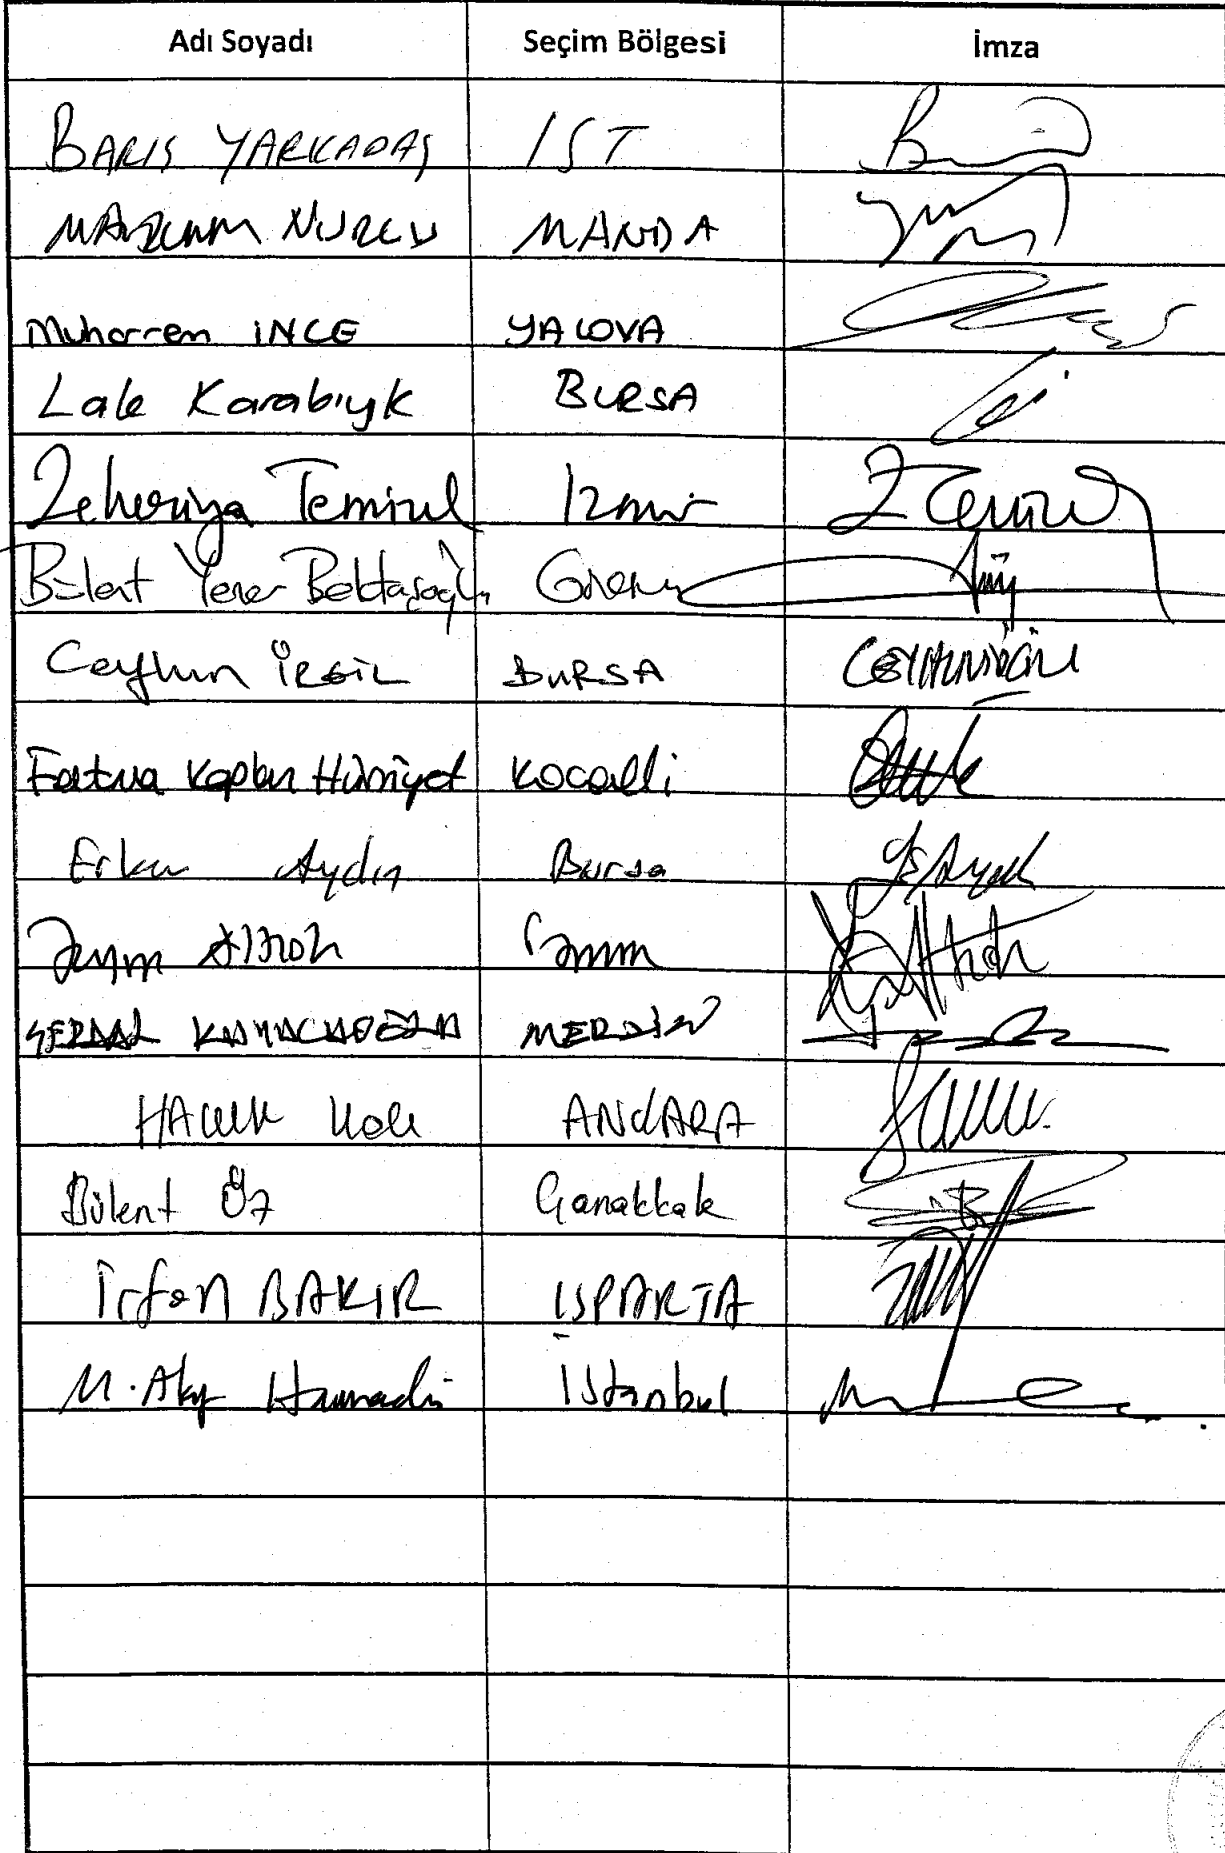 Adı Soyadı Seçim Bölgesi İmza
BARIS YARKADAŞ IST
MAZLUM NURLU MANİSA
Muharrem İNCE YALOVA
Lale Karabıyık BURSA
Zekeriya Temizel Izmir
Bülent Yener Bektaşoğlu Giresun
Ceyhun İRGİL BURSA
Fatma Kaplan Hürriyet Kocaeli
Erkan Aydın Bursa
Zeynep Altıok İzmir
SERDAL KUYUCUOĞLU MERSİN
HALUK Koç ANKARA
Bülent Öz Çanakkale
İrfan BAKIR ISPARTA
M. Akif Hamzaçebi İstanbul